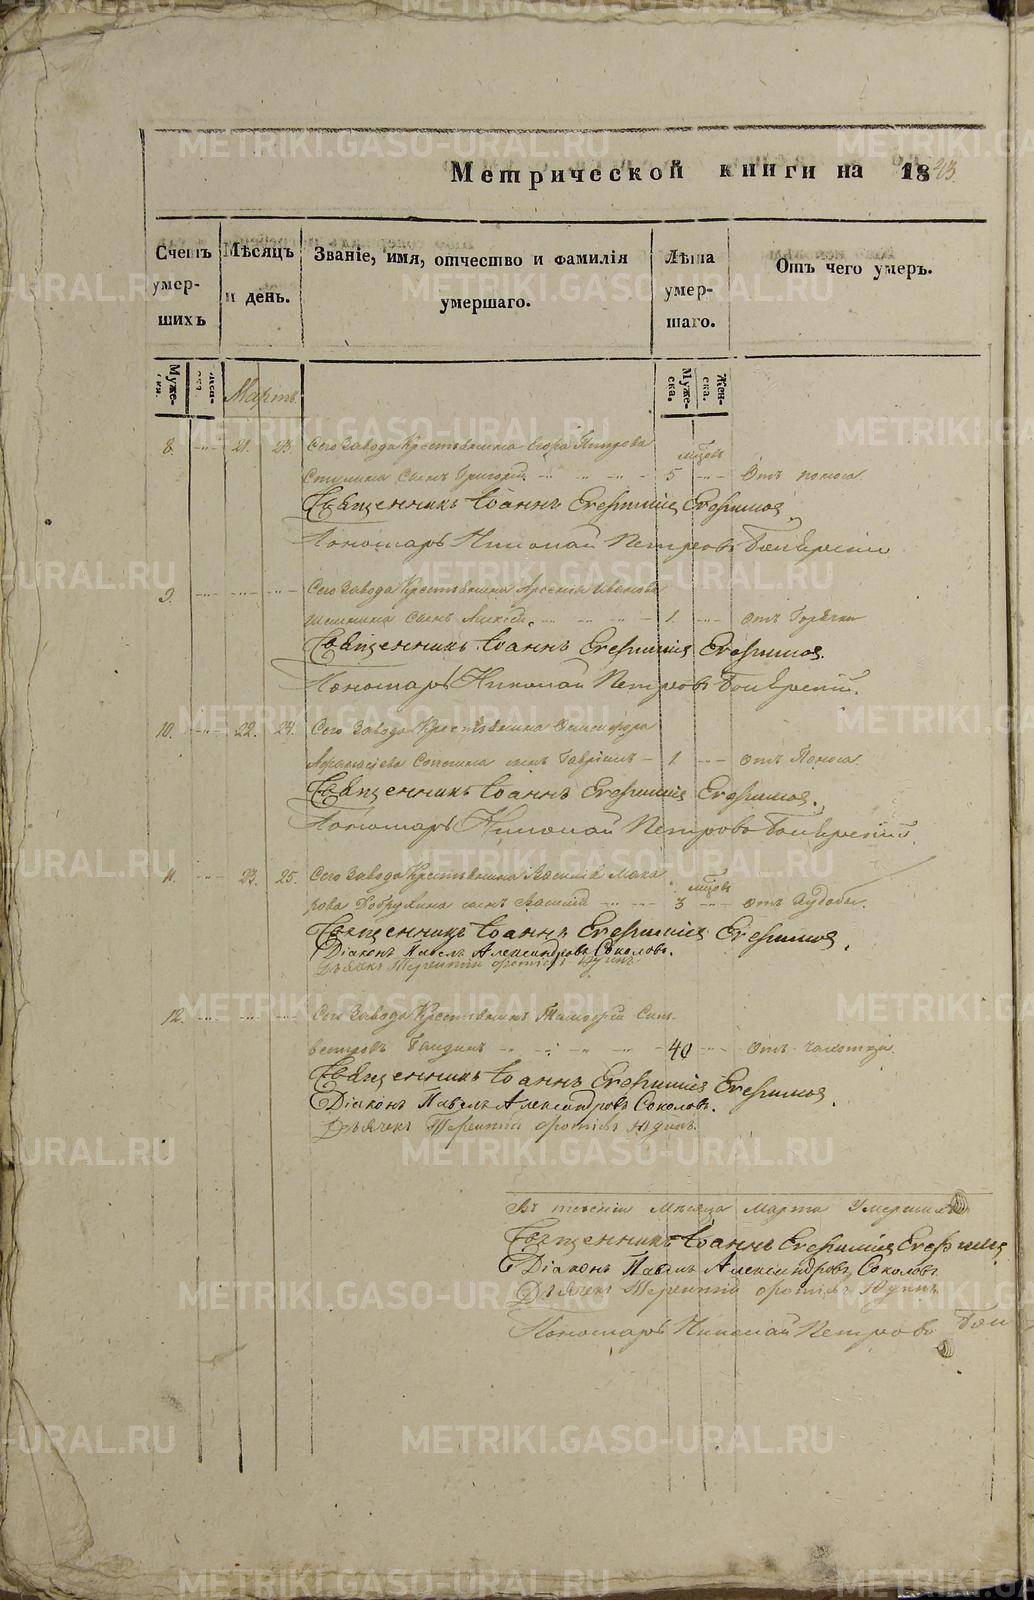 Метрической книги на 1843.
Счетъ умер-шихъ
Мѣсяцъ и день.
Званіе, имя, отчество и фамилія умершаго.
Лѣта умер-шаго.
Отъ чего умеръ.
Муже-ск.
Жен-ск.
Мартъ.
Муже-ска.
Жен-ска.
8. 21. 23. Сего Завода Крестьянина Егора Петрова мѣсяцъ
сынъ Григорій 5 Отъ поноса.
Священникъ Іоаннъ Евфиміевъ Евфимовъ.
Пономарь Николай Петровъ
9. Сего Завода Крестьянина Арсенія Иванова
сынъ Алексій 1. Отъ Горячки
Священникъ Іоаннъ Евфиміевъ Евфимовъ.
Пономарь Николай Петровъ
10. 22. 24. Сего Завода Крестьянина
Афанасіева сынъ Гавріилъ 1 Отъ Поноса.
Священникъ Іоаннъ Евфиміевъ Евфимовъ.
Пономарь Николай Петровъ
11. 23. 25. Сего Завода Крестьянина Василія Мака
рова сынъ Василій 3 Отъ Худобы.
Священникъ Іоаннъ Евфиміевъ Евфимовъ.
Діаконъ Павелъ Александровъ Соколовъ.
Дьячекъ Терентій Юдинъ
12. Сего Завода Крестьянинъ Тимофей Силь-
вестровъ 40 Отъ чахотки.
Священникъ Іоаннъ Евфиміевъ Евфимовъ.
Діаконъ Павелъ Александровъ Соколовъ.
Дьячекъ Терентій Юдинъ.
Въ теченіи Мѣсяца Марта Умершихъ
Священникъ Іоаннъ Евфиміевъ Евфимовъ
Діаконъ Павелъ Александровъ Соколовъ
Дьячекъ Терентій Юдинъ
Пономарь Николай Петровъ
METRIKI.GASO-URAL.RU